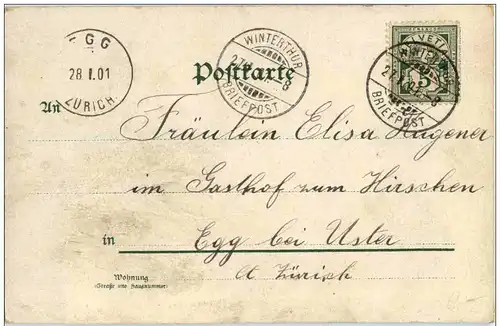 EGG
28.I.01
ZÜRICH
WINTERTHUR
BRIEFPOST
HELVETIA
WINTERTHUR
BRIEFPOST
Postkarte
An
Fräulein Elisa Hugener
im Gasthof zum Hirschen
in Egg bei Uster
Ct Zürich
Wohnung
(Straße und Hausnummer)